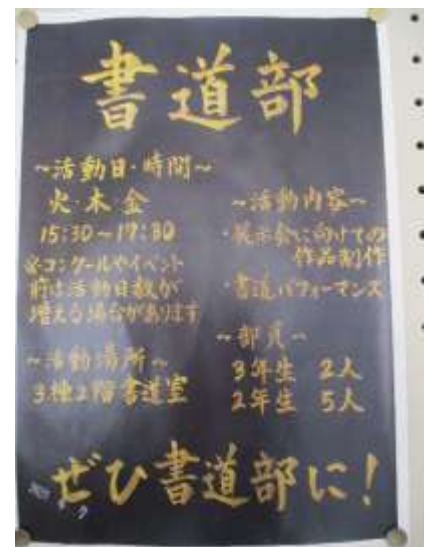 書道部
~活動日·時間~
火·木·金
15:30~17:30
※コンクールやイベント
前は活動日数が
増える場合があります
~活動場所~
3棟2階書道室
~活動内容~
·展示会に向けての
作品制作
·書道パフォーマンス
~部員~
3年生 2人
2年生 5人
ぜひ書道部に!